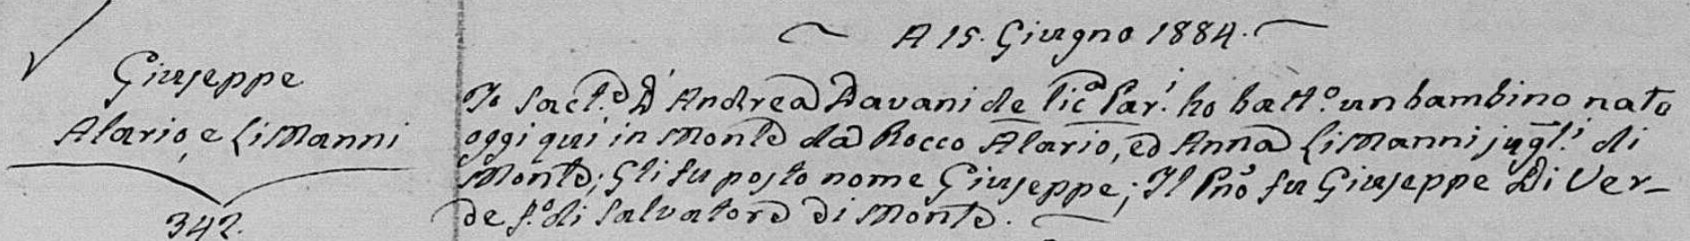 A 15. Giugno 1884.
Giuseppe
Alario, e LiManni
342.
Io Sact.e D. Andrea Davani de lic.a Par.i ho batt.o un bambino nato
oggi qui in Monte da Rocco Alario, ed Anna LiManni jugl.i di
Monte; Gli fu posto nome Giuseppe; Il Pno fu Giuseppe Di Ver-
de f.o di Salvatore di Monte.